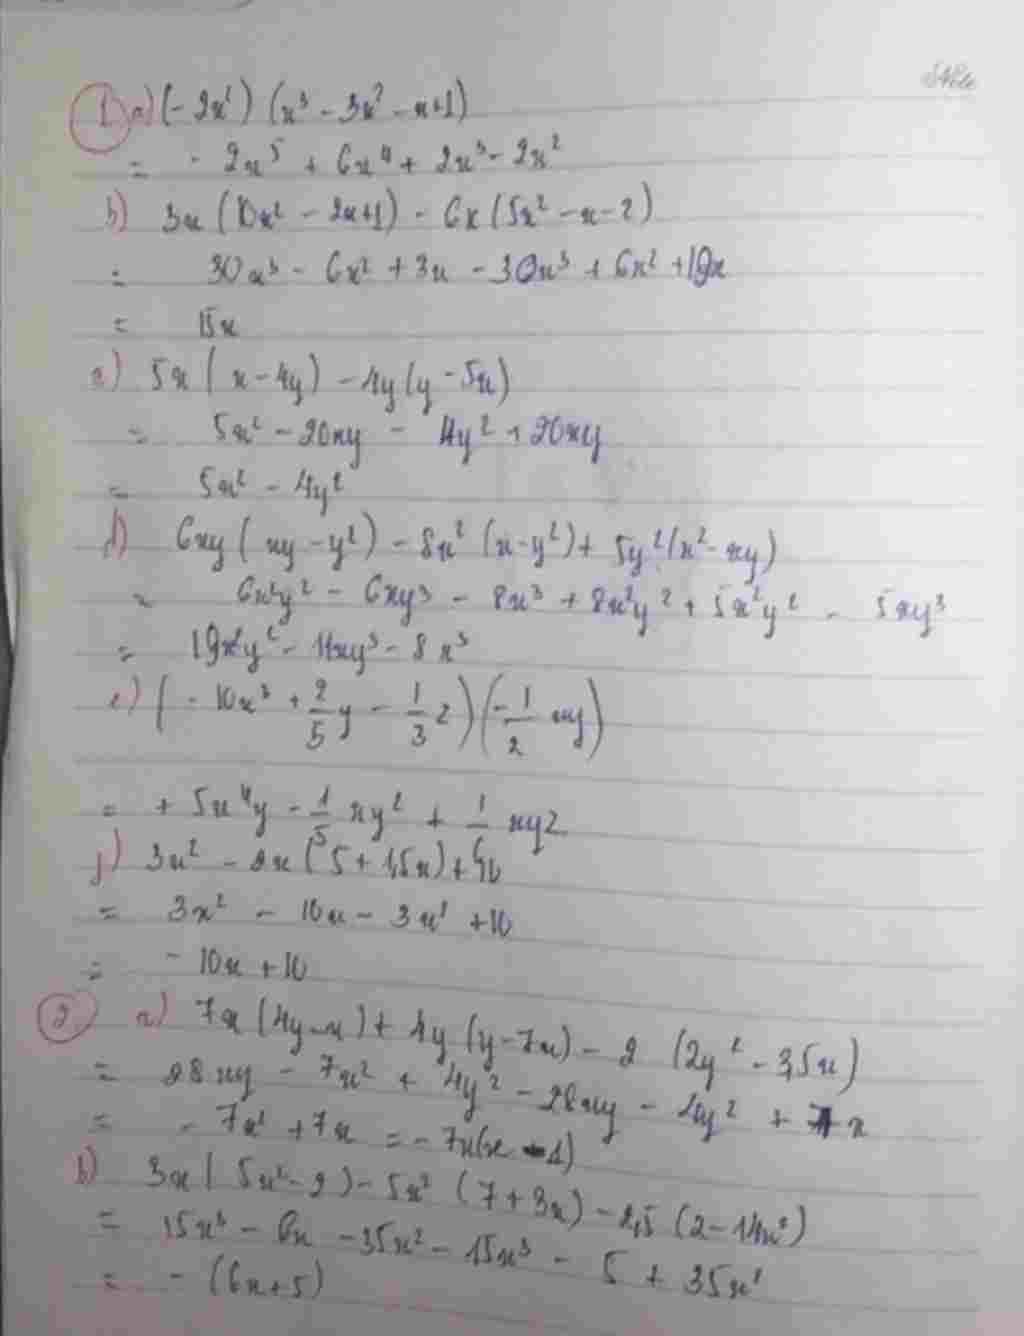 1 a) (-2x²) (x³ - 3x² - x+1)
= - 2x⁵ + 6x⁴ + 2x³ - 2x²
b) 3x (10x² - 2x+1) - 6x (5x² - x - 2)
= 30x³ - 6x² + 3x - 30x³ + 6x² + 12x
= 15x
c) 5x ( x - 4y) - 4y (y - 5x)
= 5x² - 20xy - 4y² + 20xy
= 5x² - 4y²
d) 6xy ( xy - y²) - 8x² (x - y²) + 5y² (x² - xy)
= 6x²y² - 6xy³ - 8x³ + 8x²y² + 5x²y² - 5xy³
= 19x²y² - 11xy³ - 8x³
e) ( - 10x³ + 2/5 y - 1/3 z ) ( - 1/2 xy )
= + 5x⁴y - 1/5 xy² + 1/6 xyz
f) 3x² - 2x ( 5 + 1,5x) + 10
= 3x² - 10x - 3x² + 10
= - 10x + 10
2 a) 7x (4y - x) + 4y (y - 7x) - 2 (2y² - 3,5x)
= 28xy - 7x² + 4y² - 28xy - 4y² + 7x
= - 7x² + 7x = - 7x(x - 1)
b) 3x ( 5x² - 2) - 5x² (7 + 3x) - 2,5 (2 - 14x²)
= 15x³ - 6x - 35x² - 15x³ - 5 + 35x²
= - (6x + 5)